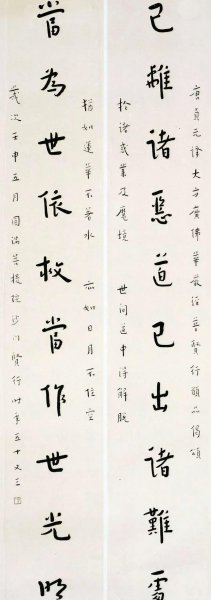 唐貞元譯大方廣佛華嚴經普賢行願品偈頌
已離諸惡道已出諸難
於諸惑業及魔境 世間道中得解脫
猶如蓮華不著水 亦如日月不住空
當為世依救當作世光明
歲次壬申五月圓滿菩提院沙門賢行時年五十又三